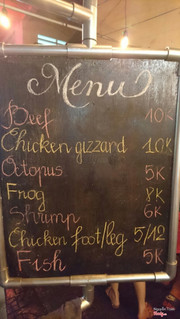 Menu
Beef 10K
Chicken gizzard 10K
Octopus 5K
Frog 8K
Shrump 6K
Chicken foot/leg 5/12
Fish 5K